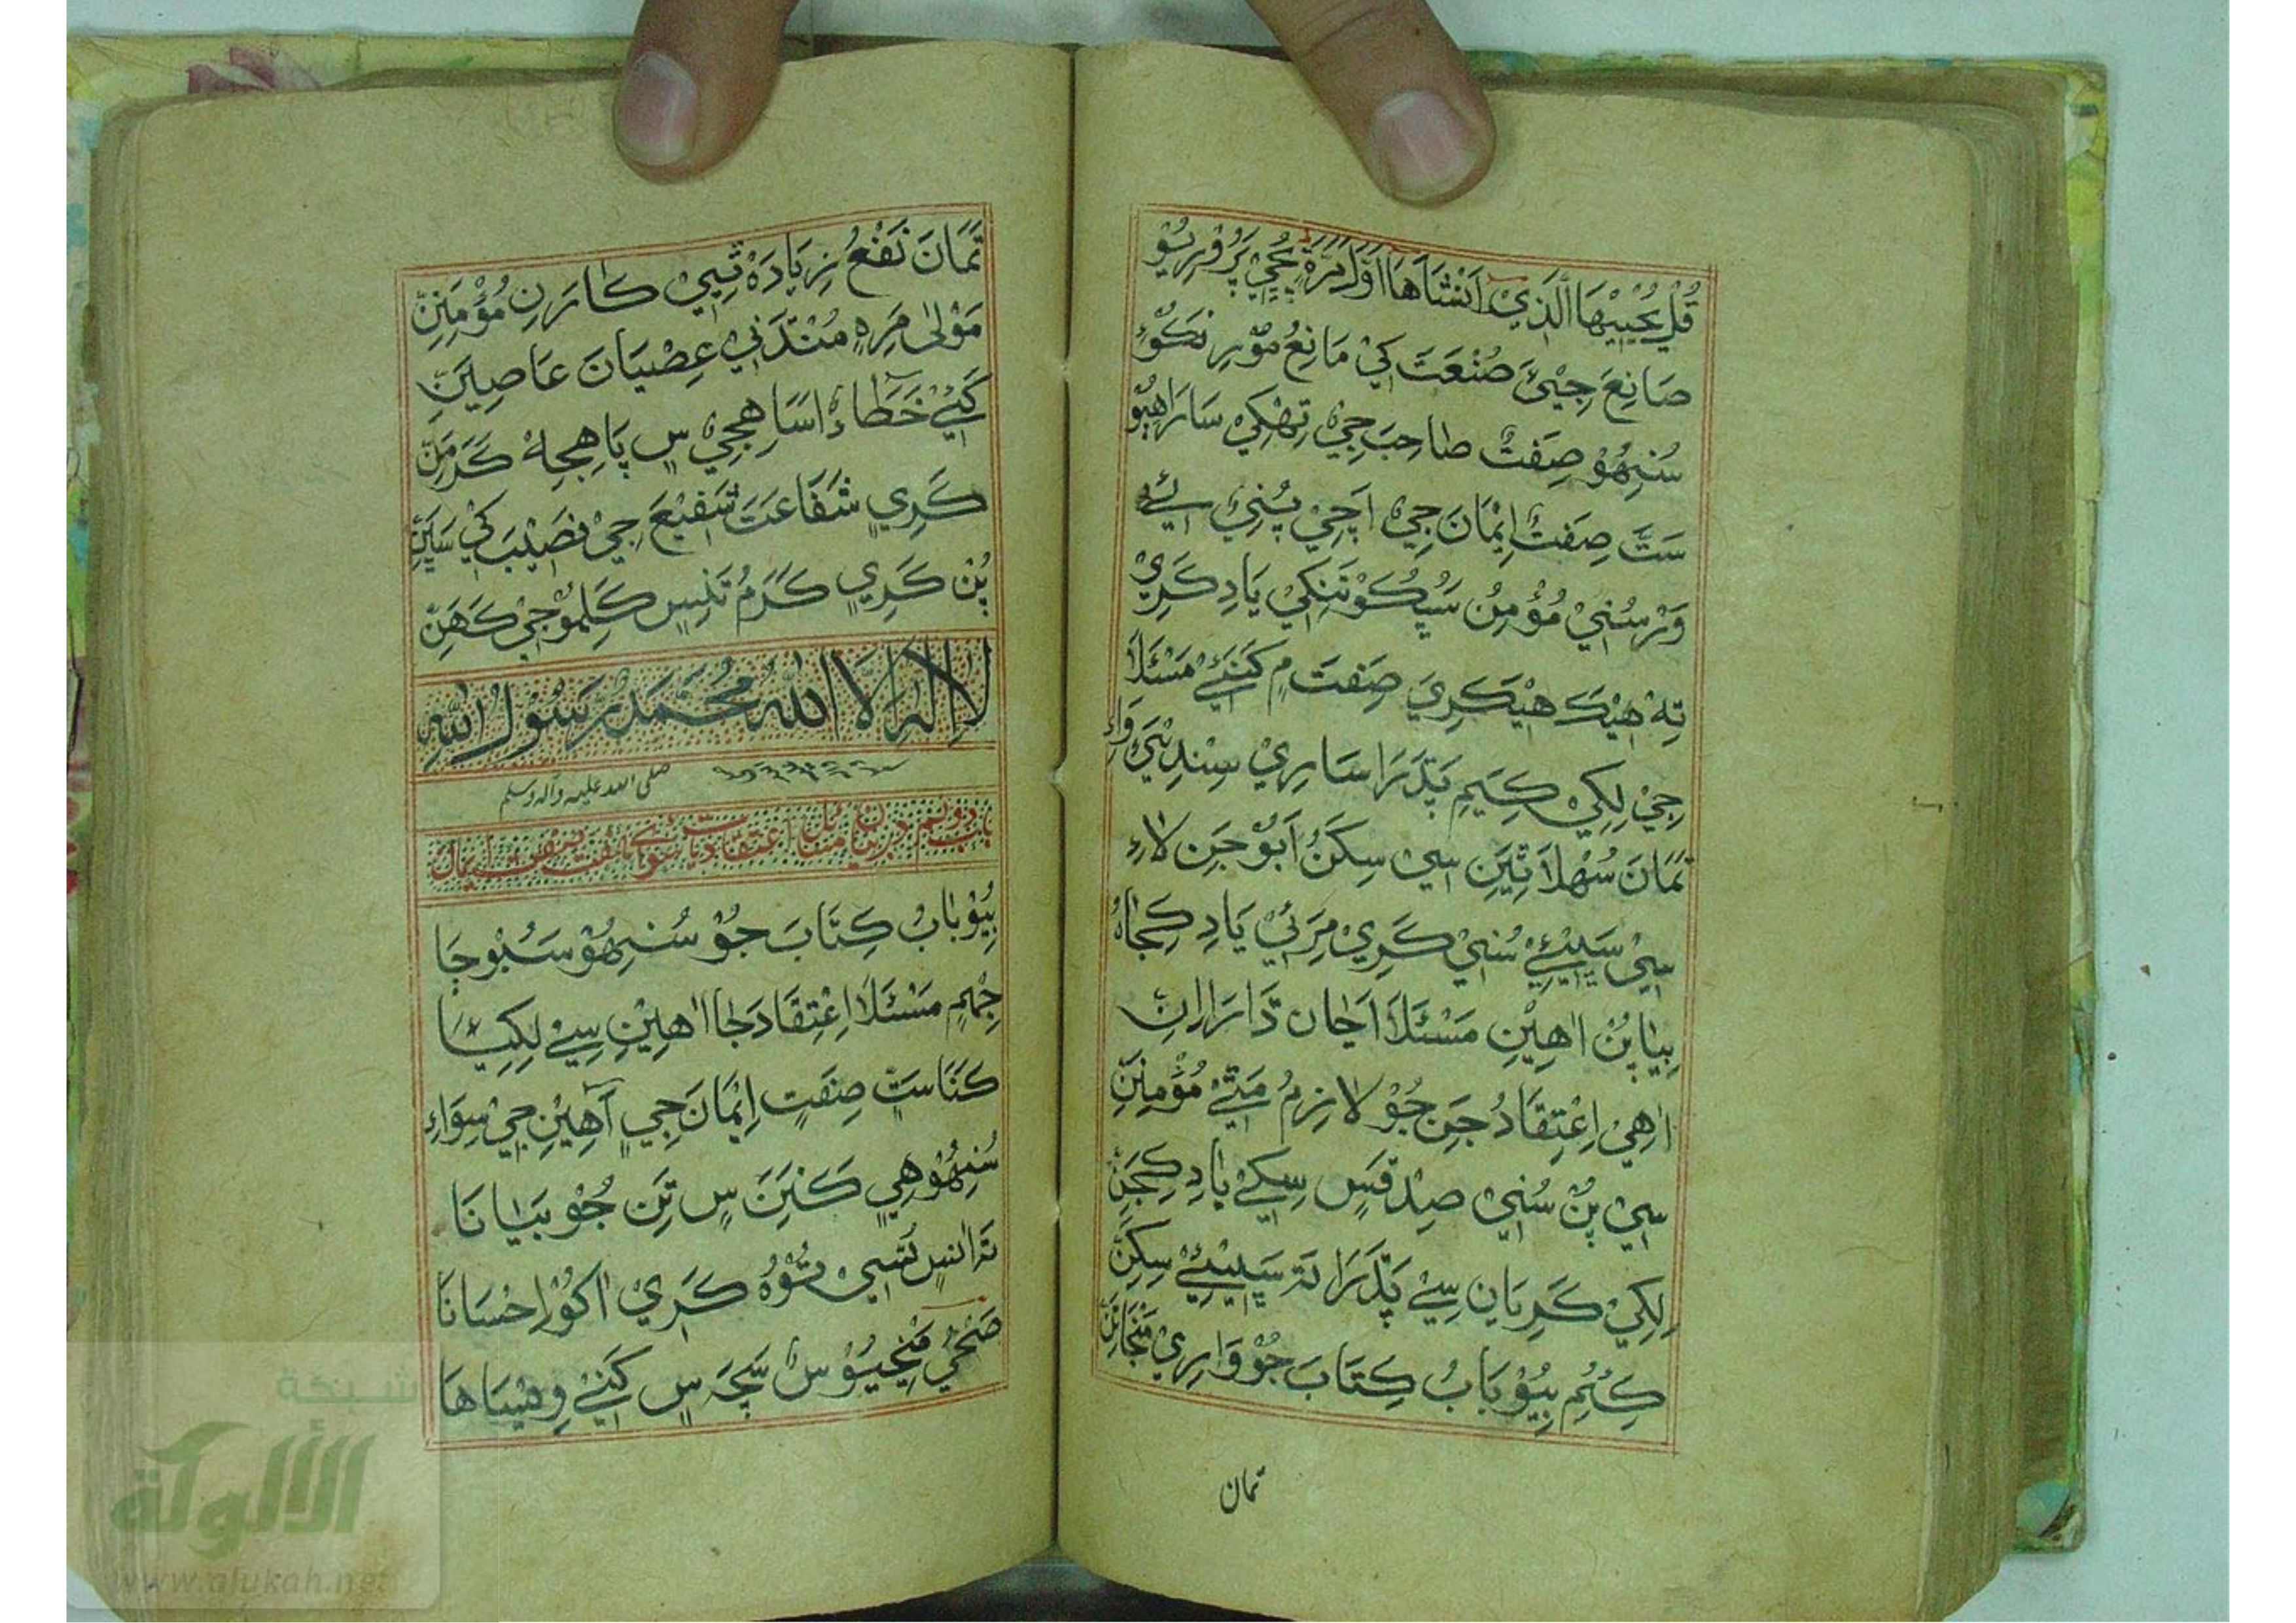 قُلْ يُحْيِيْهَا الَّذِيْ اَنْشَاَهَا اَوَّلَ مَرَّةٍ جِيْ پَرُ
صَانِعَ جِيْئَ صُنْعَتَ کَيْ مَانِعُ مُوْرِ نَکُوْءِ
سُنِهُوْ صِفَتْ صَاحِبَ جِيْ تِهْکِيْ سَارَاهِيُوْ
سَتَّ صِفَتْ اِيْمَانَ جِيْ اَچِيْ پُنِيْ
وَرْ سُنِيْ مُؤْمِنُ سِپُکُوْ تَنِکِيْ يَادِ کَرِيْ
تِهْ هِيْکَ هِيْکَرِيَ صِفَتَ مِ کَنَيْءِ مَسْئَلَا
جِيْ لِکِيْ کِيَمِ پَڌَرَا سَارِيْ سِنْڌِيَيْ وَاءِ
تَمَانَ سُهْلَا ٿِيَنِ سِيْ سِکَڻُ اَبُوْجَنِ لَاءِ
سِيْ سَڀِيْئِيْ سُنِيْ کَرِيْ مِرَئِيْ يَادِ کِجَاهُ
بِيَا پُنْ اٰهِيْنِ مَسْئَلَا اَجَان دَارَا اِنِ
اٰهِيْ اِعْتِقَادُ جَنِ جُوْ لَازِمُ مَٿٖيْ مُؤْمِنِنّ
سِيْ پُنْ سُنِيْ صِدْقَسِ سِکِيْ يَادِ کِجَنِّ
لِکِيْ کَرِيَانِ سِيْ پَڌَرَا تَہ سَڀِيْئِيْ سِکَنِّ
کِيُمِ ٻِيُوْ بَابُ کِتَابَ جُوْ وَارِيْ مَنْجَانِنّ
تمان
تَمَانَ نَفْعُ زِيَادَہْ ٿِيَيْ کَارَنِ مُؤْمِنِنّ
مَوْلٰى مَرِہٖ مُنْڌَنِيْ عِصْيَانَ عَاصِيَنِّ
کَيَيْ خَطَاءُ اَسَاهِجِيْ سِ پَاهِجِہْ کَرَمَنِّ
کَرِيٖ شَفَاعَتَ شَفِيْعَ جِيْ نَصِيْبَ کَيْ سَيَنِّ
پُنْ کَرِيٖ کَرَمُ تَنِسِ کَلِمُوْ جِيْ کَهَنِّ
لَا اِلٰهَ اِلَّا اللّٰهُ مُحَمَّدٌ رَّسُوْلُ اللّٰهِ
صلى الله عليه وآله وسلم
باب دوئم در بيان مسائل اعتقاديات سواى هفت صفت ايمان
ٻِيُوْ بَابُ کِتَابَ جُوْ سُنِهُوْ سَبُوْجَا
جِهْمِ مَسْئَلَا اِعْتِقَادَ جَا اٰهِيْنِ سِيْ لِکِيَا
کَنَا سَتٖ صِفَتٖ اِيْمَانَ جِيٖ آهِيْنِ جِيْ سِوَاءِ
سُنِهُوْ هِيٖ کَنِّنَ سِ تِنِ جُوْ بَيَانَا
تَہ اَنسِ تُسِيْ تُوْهُ کَرِيْ اٰکُوْ اِحْسَانَا
صَحِيْ مَنْجِيُوْ سِ سَچَہ سِ کَنِيْ وِيْسَاهَا
شبكة
الألوكة
www.alukah.net